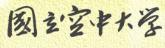 國立空中大学